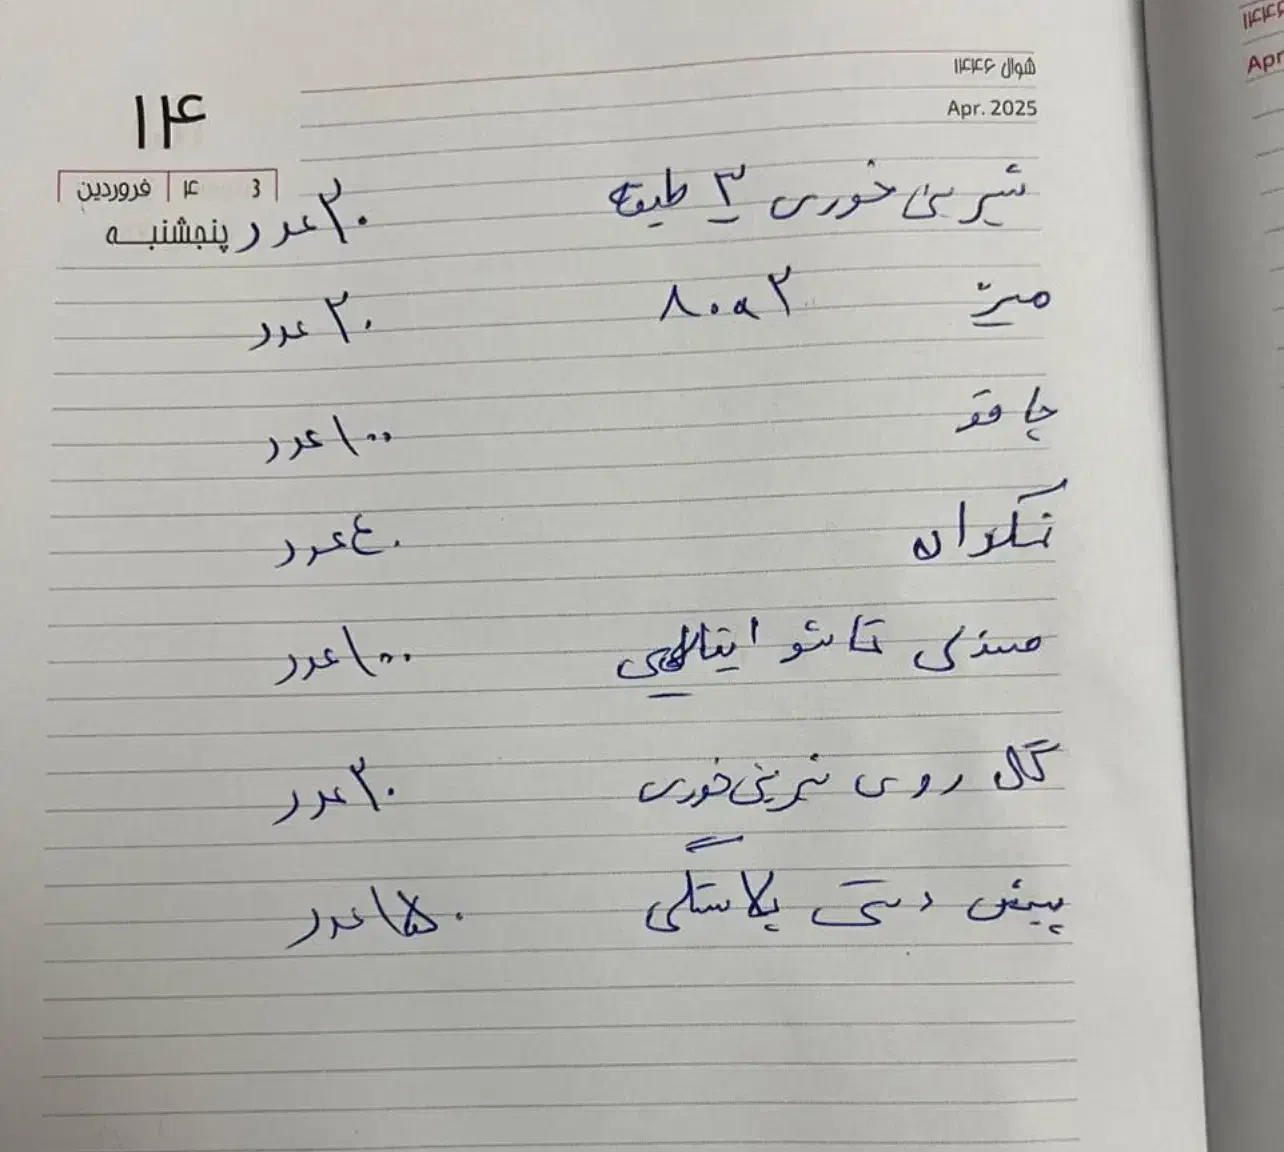 شوال ۱۴۴۶
Apr. 2025
۱۴
3 ۴ فروردین
پنجشنبه
شیرینی خوری ۳ طبقه ۲۰ عدد
میز ۸۰۵۲ ۲۰ عدد
چاقو ۱۰۰ عدد
نمکدان ۴۰ عدد
صندلی تاشو ایتالیایی ۱۰۰ عدد
گل روی شیرینی خوری ۲۰ عدد
پیش دستی پلاستکی ۱۵۰ عدد
۱۴۴۶
Apr